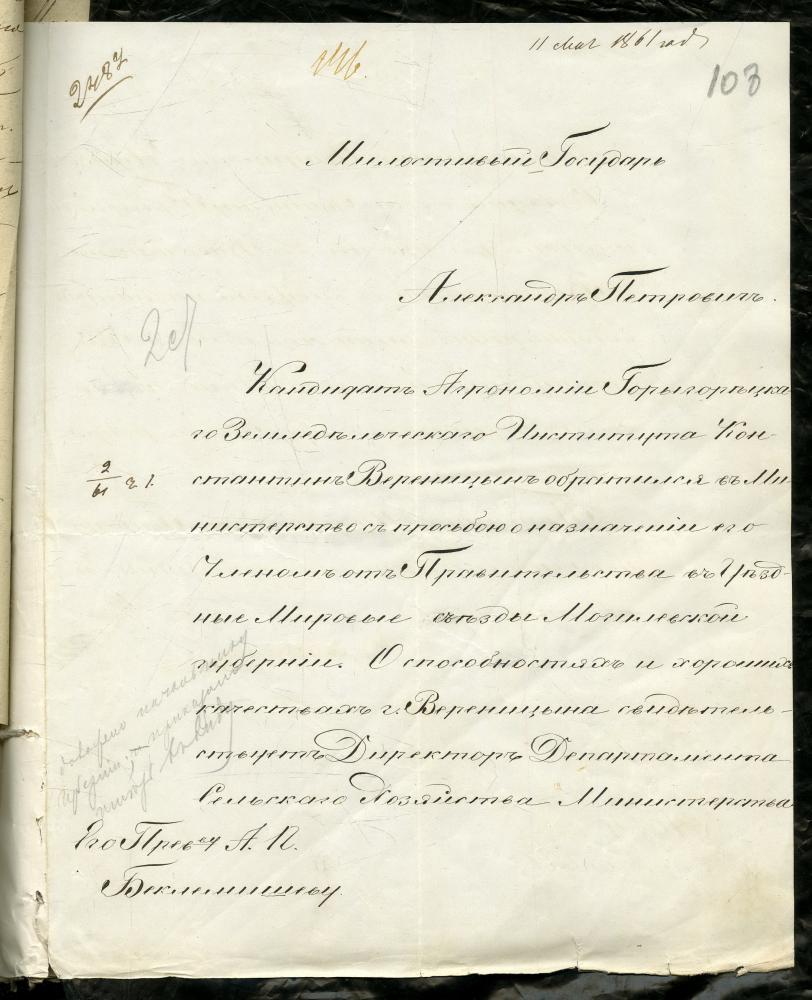 2487
11 мая 1861 года
103
Милостивый Государь
Александръ Петровичъ.
Кандидатъ Агрономіи Горыгорѣцка-
го Земледѣльческаго Института Кон-
стантинъ Вереницынъ обратился въ Ми-
2/61 ч. 1.
нистерство съ просьбою о назначеніи его
Членомъ отъ Правительства въ Уѣзд-
ные Мировые съѣзды Могилевской
губерніи. О способностяхъ и хорошихъ
качествахъ г. Вереницына свидѣтель-
ствуетъ Директоръ Департамента
Сельскаго Хозяйства Министерства
Его Прев-ву А. П.
Беклемишеву.